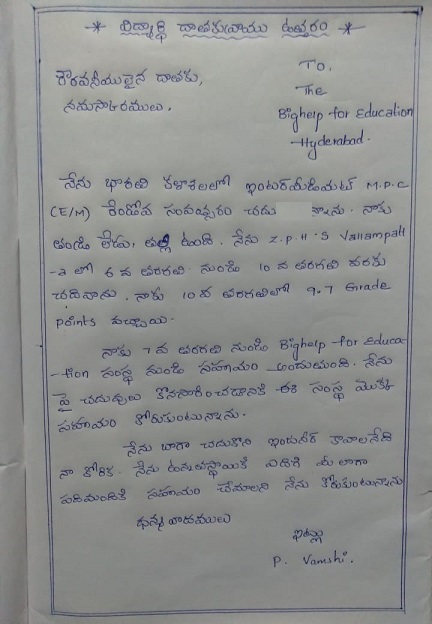 -*- విద్యార్థి దాతకువ్రాయు ఉత్తరం -*-
To,
The
Bighelp for Education
Hyderabad.
గౌరవనీయులైన దాతకు,
నమస్కారములు,
నేను భారతి కళాశాలలో ఇంటర్మీడియట్ M.P.C
(E/M) రెండోవ సంవత్సరం చదు న్నాను. నాకు
తండ్రి లేడు, తల్లి ఉంది. నేను Z.P.H.S Vallampatl
-a లో 6 వ తరగతి నుండి 10 వ తరగతి వరకు
చదివినాను. నాకు 10 వ తరగతిలో 9.7 Grade
points వచ్చాయి.
నాకు 7 వ తరగతి నుండి Bighelp for Educa-
-tion సంస్థ నుండి సహాయం అందుతుంది. నేను
పై చదువులు కొనసాగించడానికి ఈ సంస్థ యొక్క
సహాయం కోరుకుంటున్నాను.
నేను బాగా చదుకొని ఇంజనీర్ కావాలనేది
నా కోరిక. నేను ఉన్నతస్థాయికి ఎదిగి మీ లాగా
పదిమందికి సహాయం చేయాలని నేను కోరుకుంటున్నాను
ధన్యవాదములు
ఇట్లు
P. Vamshi.